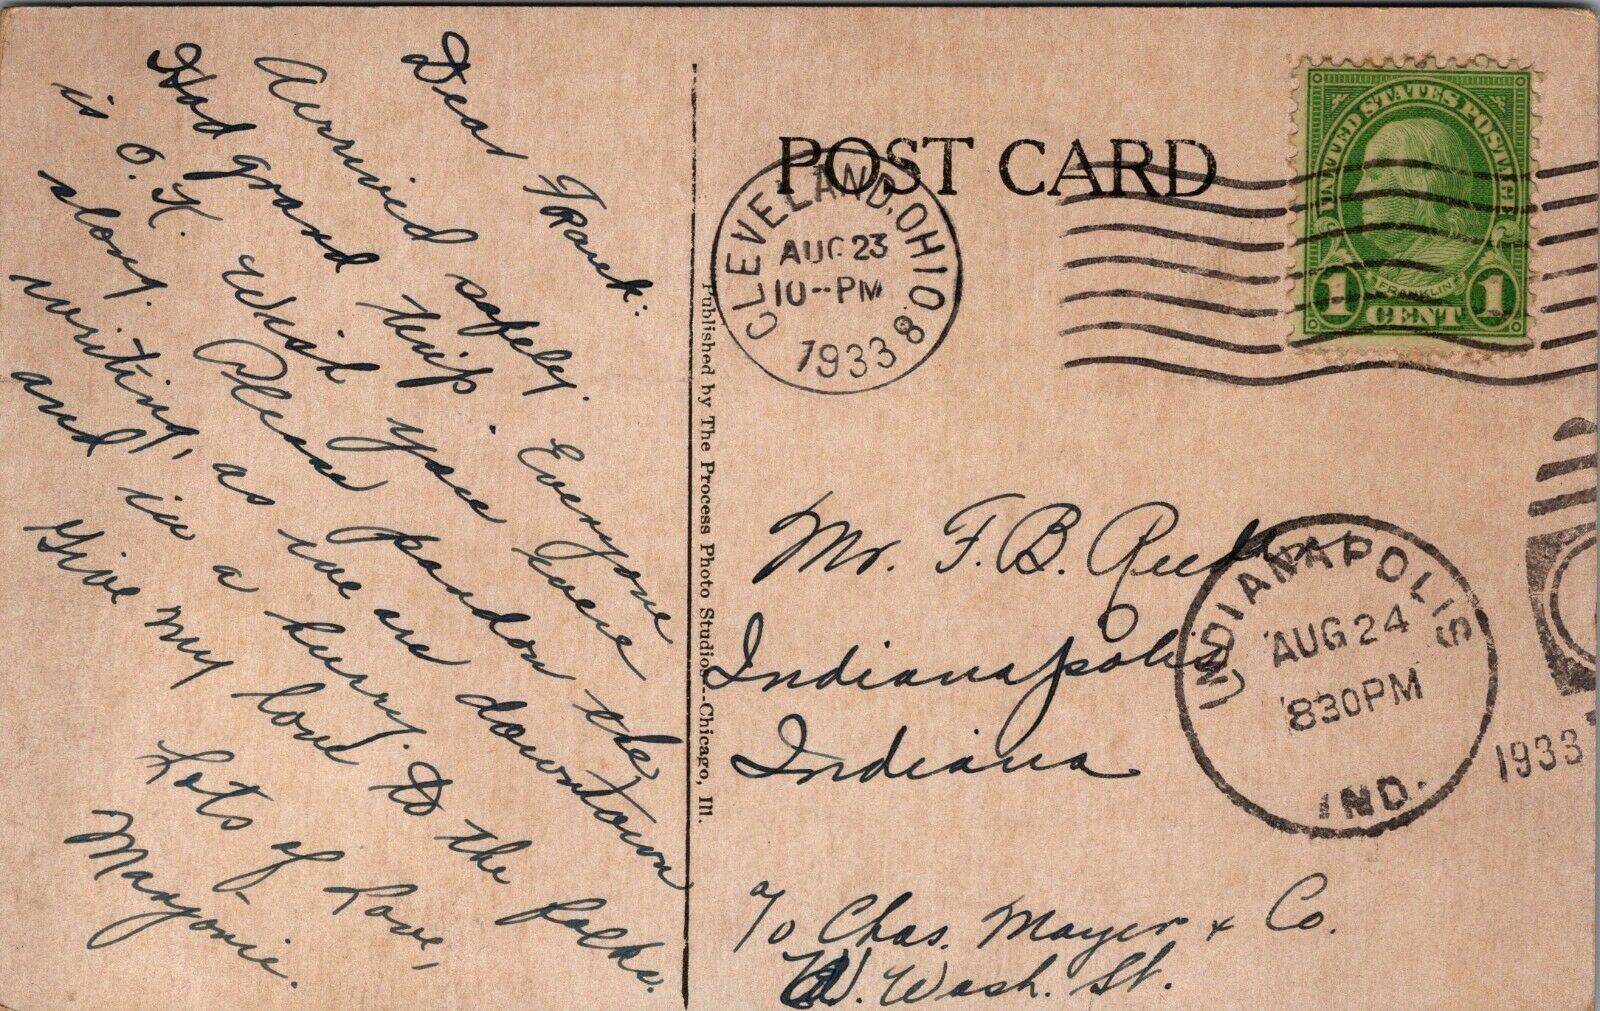 Dear Frank:
Arrived safely. Everyone
Had grand trip.
is O.K. Wish you were
along. Please pardon the
writing, as we are downtown
and in a hurry.
Give my love to the folks.
Lots of Love,
Marjorie.
Published by The Process Photo Studios--Chicago, Ill.
POST CARD
CLEVELAND, OHIO 8
AUG 23
10--PM
1933
UNITED STATES POSTAGE
FRANKLIN
1 CENT 1
Mr. F. B.
Indianapolis
Indiana
INDIANAPOLIS
AUG 24
830PM
IND.
1933
℅ Chas. Mayer & Co.
W. Wash. St.